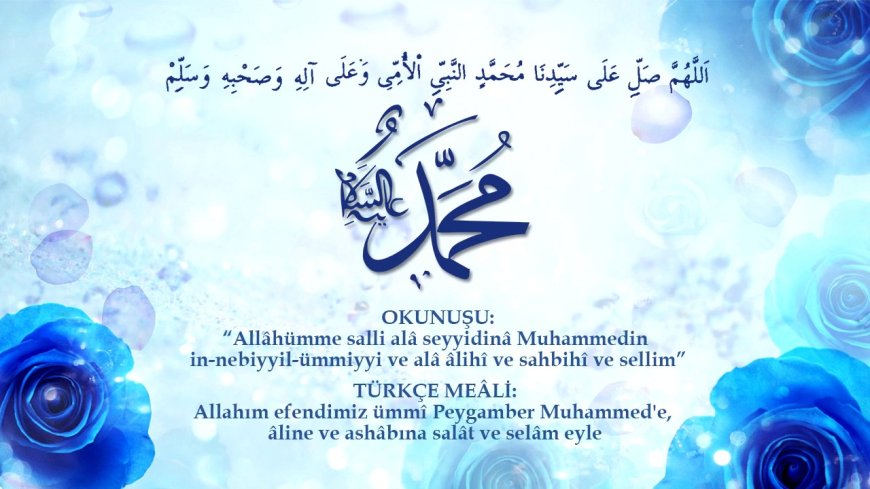 اَللَّهُمَّ صَلِّ عَلَى سَيِّدِنَا مُحَمَّدٍ النَّبِيِّ الْأُمِّيِ وَعَلَى آلِهِ وَصَحْبِهِ وَسَلِّمْ
مُحَمَّد عليه السَّلام
OKUNUŞU:
“Allâhümme salli alâ seyyidinâ Muhammedin
in-nebiyyil-ümmiyyi ve alâ âlihî ve sahbihî ve sellim”
TÜRKÇE MEÂLİ:
Allahım efendimiz ümmî Peygamber Muhammed'e,
âline ve ashâbına salât ve selâm eyle